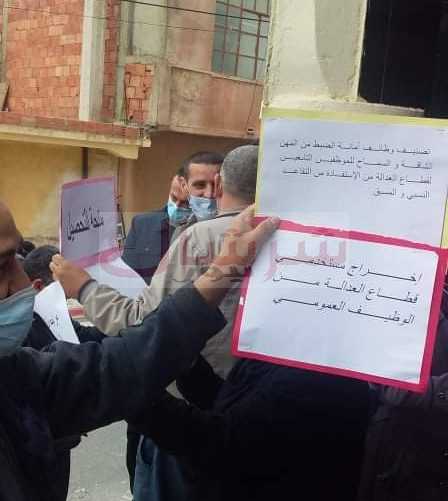 تصنيف وظائف أمانة الضبط من المهن
الشاقة و السماح للموظفين التابعين
لقطاع العدالة من الاستفادة من التقاعد
النسبي و المسبق
إخراج مستخدمي
قطاع العدالة من
الوظيف العمومي
منحة التحصيل
شرشال
نيوز